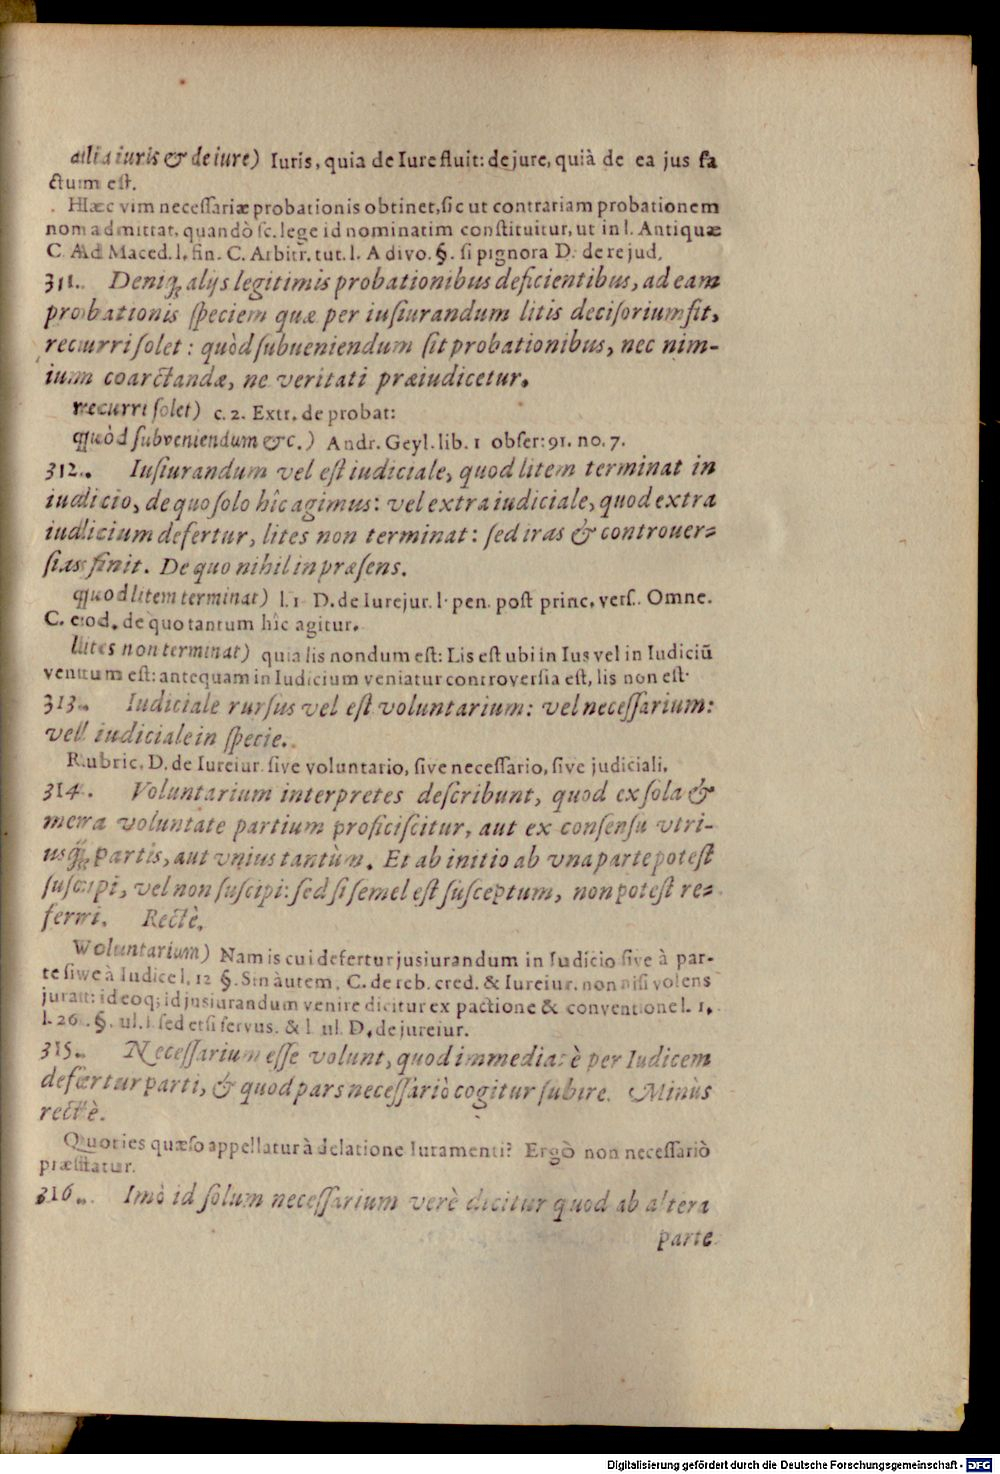 alia iuris & de iure) Iuris, quia de Iure fluit: de jure, quià de ea jus fa
ctum est.
Hæc vim necessariæ probationis obtinet, sic ut contrariam probationem
non admittat, quandò sc. lege id nominatim constituitur, ut in l. Antiquæ
C. Ad Maced. l. fin. C. Arbitr. tut. l. A divo. §. si pignora D. de re jud.
311. Deniq; alijs legitimis probationibus deficientibus, ad eam
probationis speciem quæ per iusiurandum litis decisorium fit,
recurri solet: quòd subueniendum sit probationibus, nec nim-
ium coarctandæ, ne veritati præiudicetur.
recurri solet) c. 2. Extr. de probat:
quòd subveniendum &c.) Andr. Geyl. lib. 1 obser: 91. no. 7.
312. Iusiurandum vel est iudiciale, quod litem terminat in
iudicio, de quo solo hîc agimus: vel extra iudiciale, quod extra
iudicium defertur, lites non terminat: sed iras & controuer-
sias finit. De quo nihil in præsens.
quod litem terminat) l. 1 D. de Iurejur. l. pen. post princ. vers. Omne.
C. eod. de quo tantum hîc agitur.
lites non terminat) quia lis nondum est: Lis est ubi in Ius vel in Iudiciũ
ventum est: antequam in Iudicium veniatur controversia est, lis non est.
313. Iudiciale rursus vel est voluntarium: vel necessarium:
vel iudiciale in specie.
Rubric. D. de Iureiur. sive voluntario, sive necessario, sive judiciali.
314. Voluntarium interpretes describunt, quod ex sola &
mera voluntate partium proficiscitur, aut ex consensu vtri-
usq; partis, aut vnius tantùm. Et ab initio ab vna parte potest
suscipi, vel non suscipi: sed si semel est susceptum, non potest re-
ferri. Rectè.
Voluntarium) Nam is cui defertur jusiurandum in Iudicio sive à par-
te sive à Iudice l. 12 §. Sin àutem. C. de reb. cred. & Iureiur. non nisi volens
jurat: ideoq; id jusiurandum venire dicitur ex pactione & conventione l. 1.
l. 26. §. ul. l sed etsi servus. & l ul. D. de jureiur.
315. Necessarium esse volunt, quod immediatè per Iudicem
defertur parti, & quod pars necessariò cogitur subire. Minùs
rectè.
Quoties quæso appellatur à delatione Iuramenti? Ergò non necessariò
præstatur.
316. Imò id solum necessarium verè dicitur quod ab altera
parte
Digitalisierung gefördert durch die Deutsche Forschungsgemeinschaft - DFG